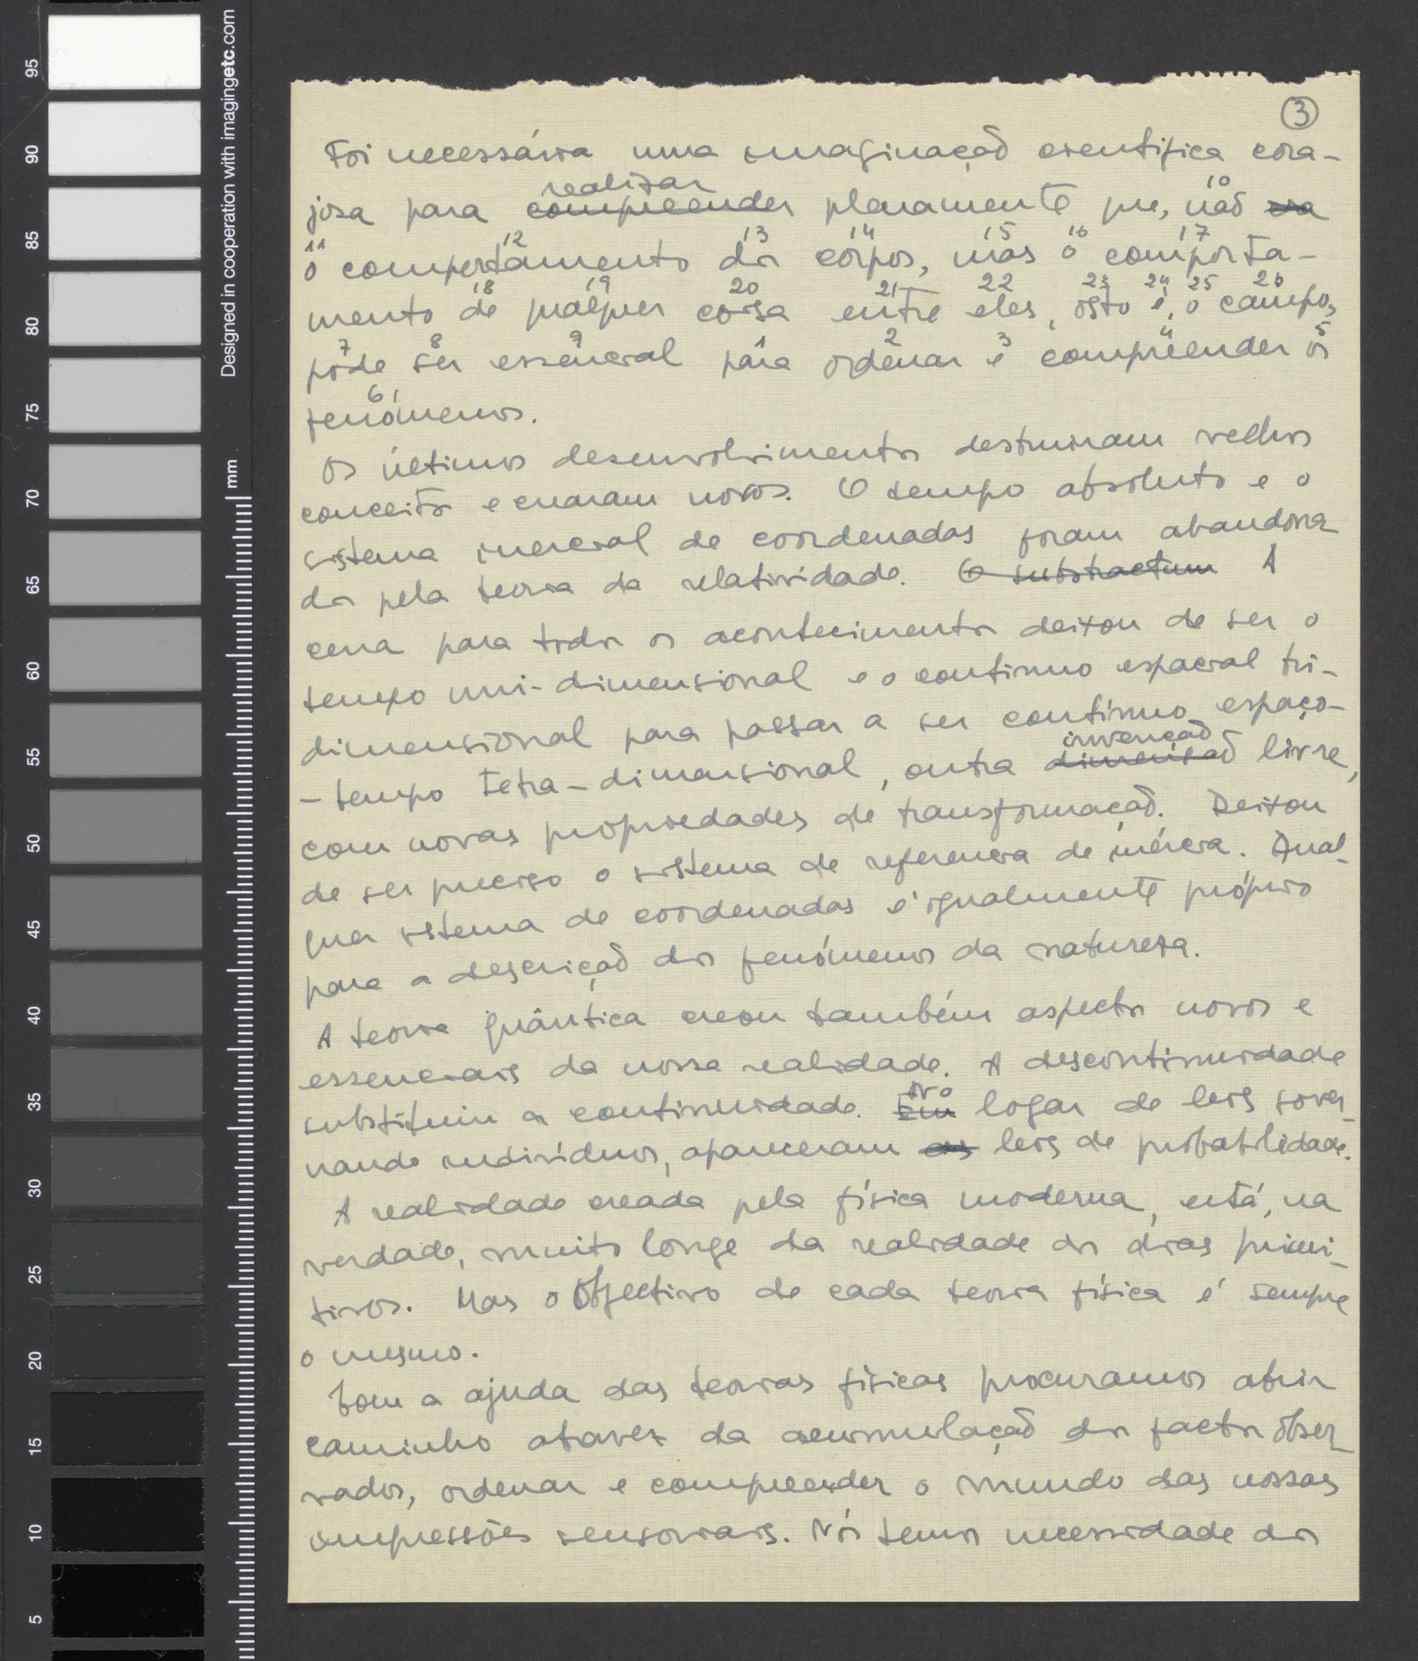 95
90
85
80
75
70
65
60
55
50
45
40
35
30
25
20
15
10
5
mm
Designed in cooperation with imagingetc.com
3
Foi necessária uma imaginação científica cora-
realizar
josa para compreender plenamente que, não
10
11 12 13 14 15 16 17
o comportamento dos corpos, mas o comporta-
18 19 20 21 22 23 24 25 26
mento de qualquer coisa entre eles, isto é, o campo,
7 8 9 1 2 3 4 5
póde ser essencial para ordenar e compreender os
6
fenómenos.
Os últimos desenvolvimentos destruiram velhos
conceitos e crearam novos. O tempo absoluto e o
sistema inercial de coordenadas foram abandona
dos pela teoria da relatividade. O substractum A
cena para todos os acontecimentos deixou de ser o
tempo uni-dimensional e o contínuo espacial tri-
dimensional para passar a ser contínuo espaço-
invenção
-tempo tetra-dimensional, outra dimensão livre,
com novas propriedades de transformação. Deixou
de ser preciso o sistema de referencia de inércia. Qual-
quer sistema de coordenadas é igualmente próprio
para a descrição dos fenómenos da natureza.
A teoria quântica creou também aspectos novos e
essenciais da nossa realidade. A descontinuidade
No
substituiu a continuidade. Em logar de leis gover-
nando indivíduos, apareceram as leis de probabilidade.
A realidade creada pela física moderna, está, na
verdade, muito longe da realidade dos dias primi-
tivos. Mas o objectivo de cada teoria física é sempre
o mesmo.
Com a ajuda das teorias físicas procuramos abrir
caminho atravez da acumulação dos factos obser-
vados, ordenar e compreender o mundo das nossas
impressões sensoriais. Nós temos necessidade dos